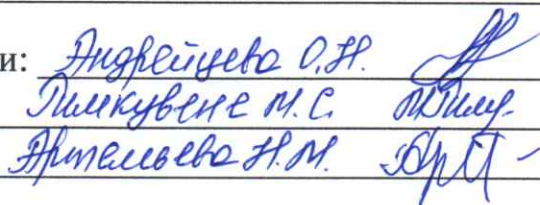 и: Андрейцева О.Н.
Пимкувене М.С.
Артемьева Н.М.